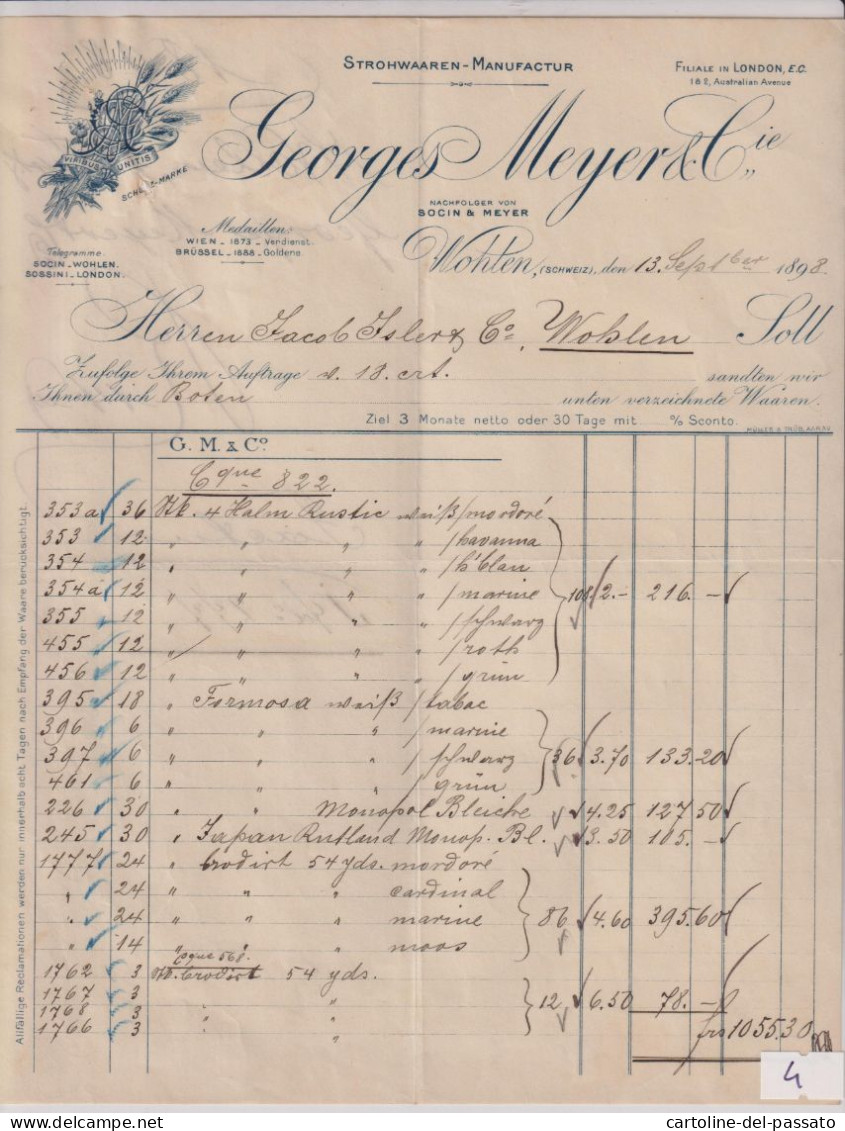 STROHWAAREN-MANUFACTUR
FILIALE IN LONDON, E.C.
1 & 2, Australian Avenue
VIRIBUS UNITIS
SCHUTZ-MARKE
Georges Meyer & Cie
NACHFOLGER VON
SOCIN & MEYER
Medaillen:
WIEN - 1873 - Verdienst.
BRÜSSEL - 1888 - Goldene.
Telegramme:
SOCIN-WOHLEN.
SOSSINI-LONDON.
Wohlen, (SCHWEIZ), den 13. Septber 1898.
Herren Jacob Isler & Co, Wohlen Soll
Zufolge Ihrem Auftrage v. 13. crt. sandten wir
Ihnen durch Boten unten verzeichnete Waaren.
Ziel 3 Monate netto oder 30 Tage mit % Sconto.
G. M. & Co.
Cque 822.
353a 36 Stk. 4 Halm Rustic weiß/mordoré
353 12 " " " " /havanna
354 12 " " " " /h'blau
354a 12 " " " " /marine 108 2.- 216.-
355 12 " " " " /schwarz
455 12 " " " " /roth
456 12 " " " " /grün
395 18 " Formosa weiß/tabac
396 6 " " " /marine
397 6 " " " /schwarz 36 3.70 133.20
461 6 " " " /grün
226 30 " " Monopol Bleiche 4.25 127.50
245 30 " Japan Rutland Monop. Bl. 3.50 105.-
1777 24 " brodirt 54 yds. mordoré
" 24 " " " cardinal
" 24 " " " marine 86 4.60 395.60
" 14 " " " moos
Cque 568.
1762 3 Stk. brodirt 54 yds.
1767 3 " "
1768 3 " " 12 6.50 78.-
1766 3 " "
frs 1055.30
Allfällige Reclamationen werden nur innerhalb acht Tagen nach Empfang der Waare berücksichtigt.
4
cartoline-del-passato